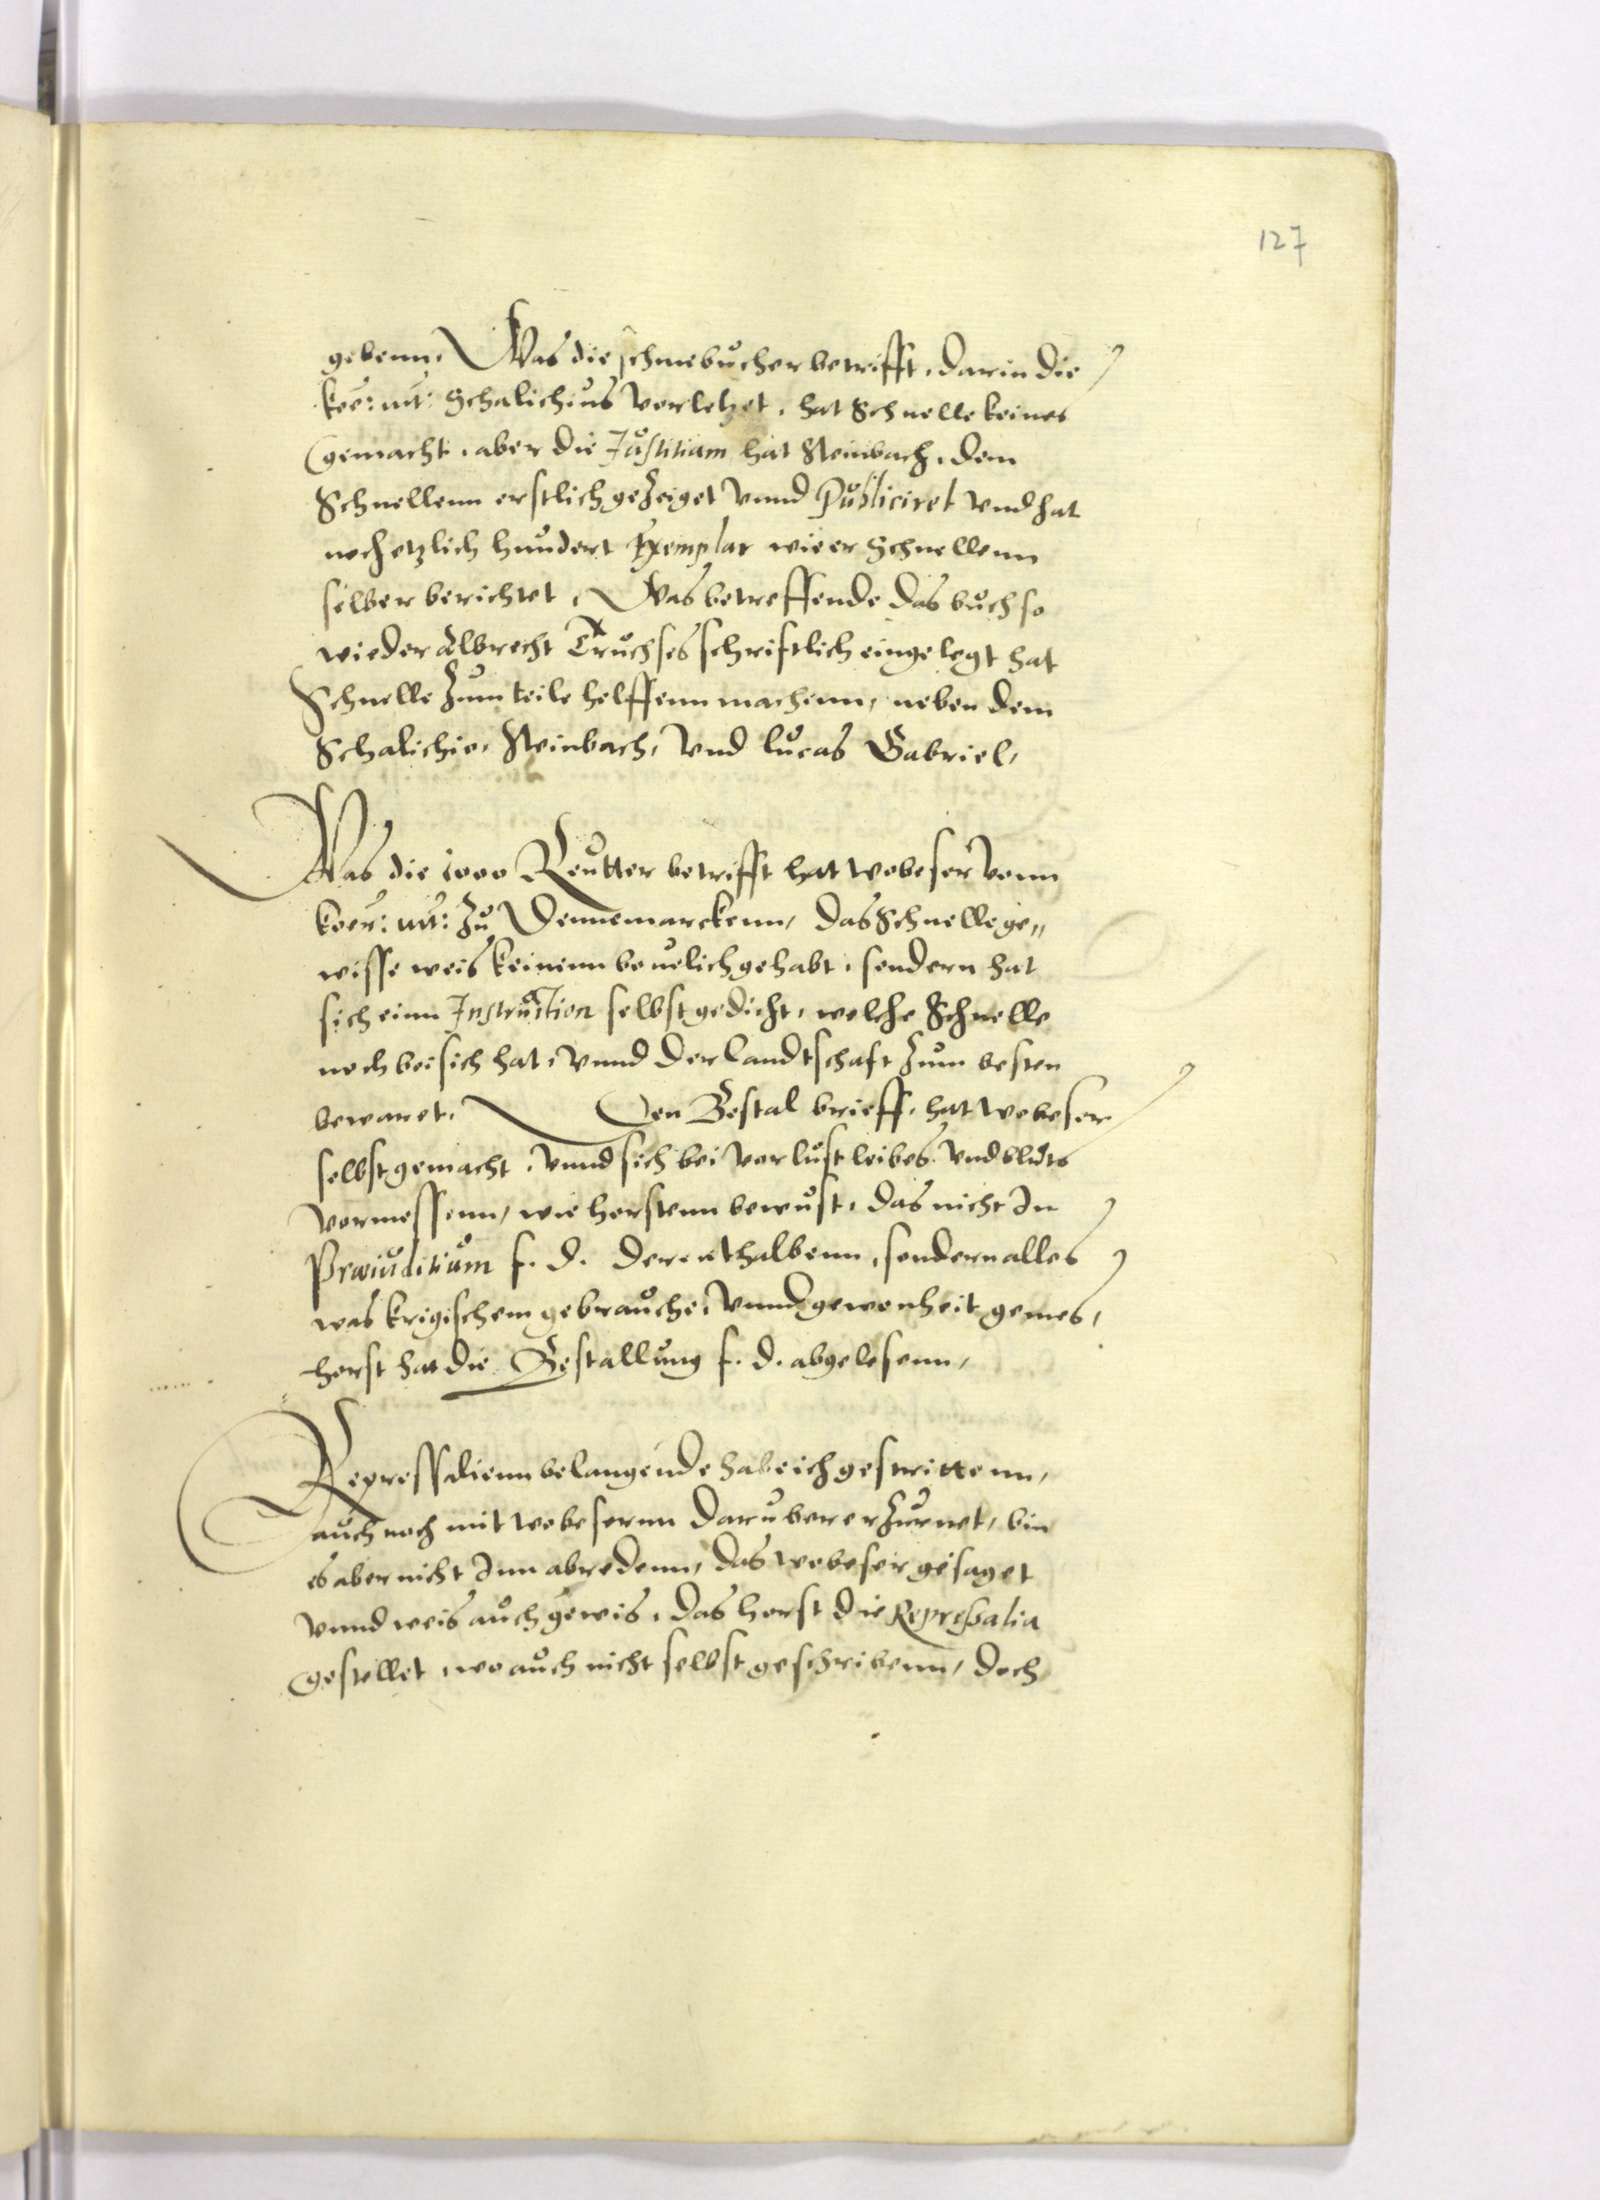 127
gebenn, Was die schmebucher betrifft, darin die
koe: mt: Schalichius verletzet, hat Schnelle keines
gemacht, aber die Justitiam hat Steinbach, dem
Schnellenn erstlich gezeiget vnnd Publiciret vnd hat
noch etzlich hundert Exemplar wie er Schnellenn
selber berichtet, Was betreffende das buch so
wieder Albrecht Truchses schriftlich eingelegt hat
Schnelle zum teile helffenn machenn, neben dem
Schalichio, Steinbach, vnd lucas Gabriel,
Was die 1000 Reutter betrifft hat wobeser vonn
koer: mt: zu Dennemarckenn, das Schnelle ge„
wisse weis keinenn beuelich gehabt, sondern hat
sich einn Instruction selbst gedicht, welche Schnelle
noch bei sich hat, vnnd der landtschaft zum besten
bewaret. Den Bestal brieff, hat wobeser
selbst gemacht, vnnd sich bei vorlust leibes vnd bluts
vormessenn, wie horstenn bewust, das nicht In
Præiuditium f. d. derenthalbenn, sondern alles
was krigischem gebrauche, vnnd gewonheit gemes,
horst hat die Bestallung f. d. abgelesenn,
Repressalienn belangende habe ich gestrittenn,
auch noch mit wobesernn daruber erzurnet, bin
es aber nicht Inn abredenn, das wobeser gesaget
vnnd weis auch gewis, das horst die Repreßalia
gestellet, wo auch nicht selbst geschribenn, doch